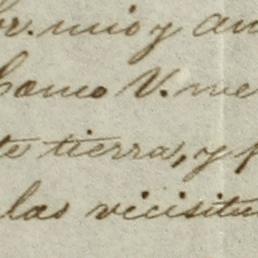 or. mio y am
Como V. me
te tierra, y p
las vicisitu